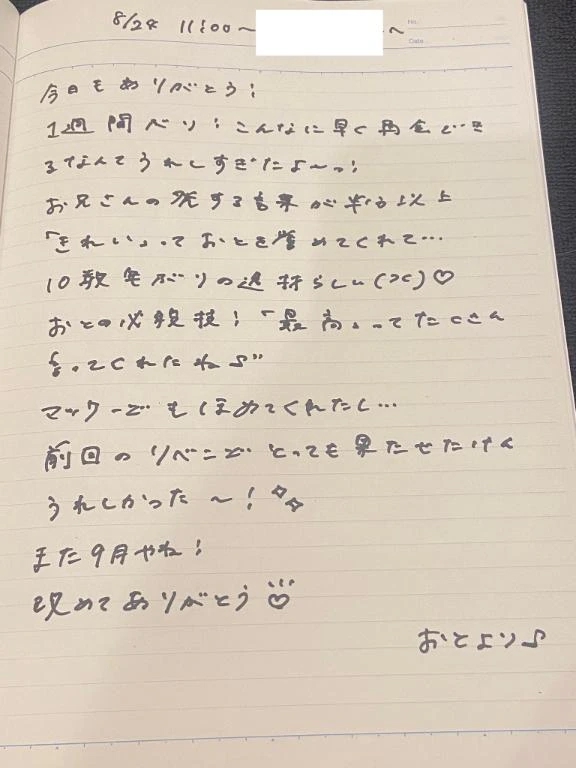 8/24 11:00〜 〜
No.
Date
今日もありがとう!
1週間ぶり!こんなに早く再会でき
るなんてうれしすぎたよ〜っ!
お兄さんの発する言葉が半分以上
「きれい」っておとを褒めてくれて…
10数年ぶりの
おとの必殺技!「最高」ってたくさん
言ってくれたね♪
マックーでもほめてくれたし…
前回のリベンジとっても果たせたけん
うれしかった〜!
また9月やね!
改めてありがとう
おとより♪